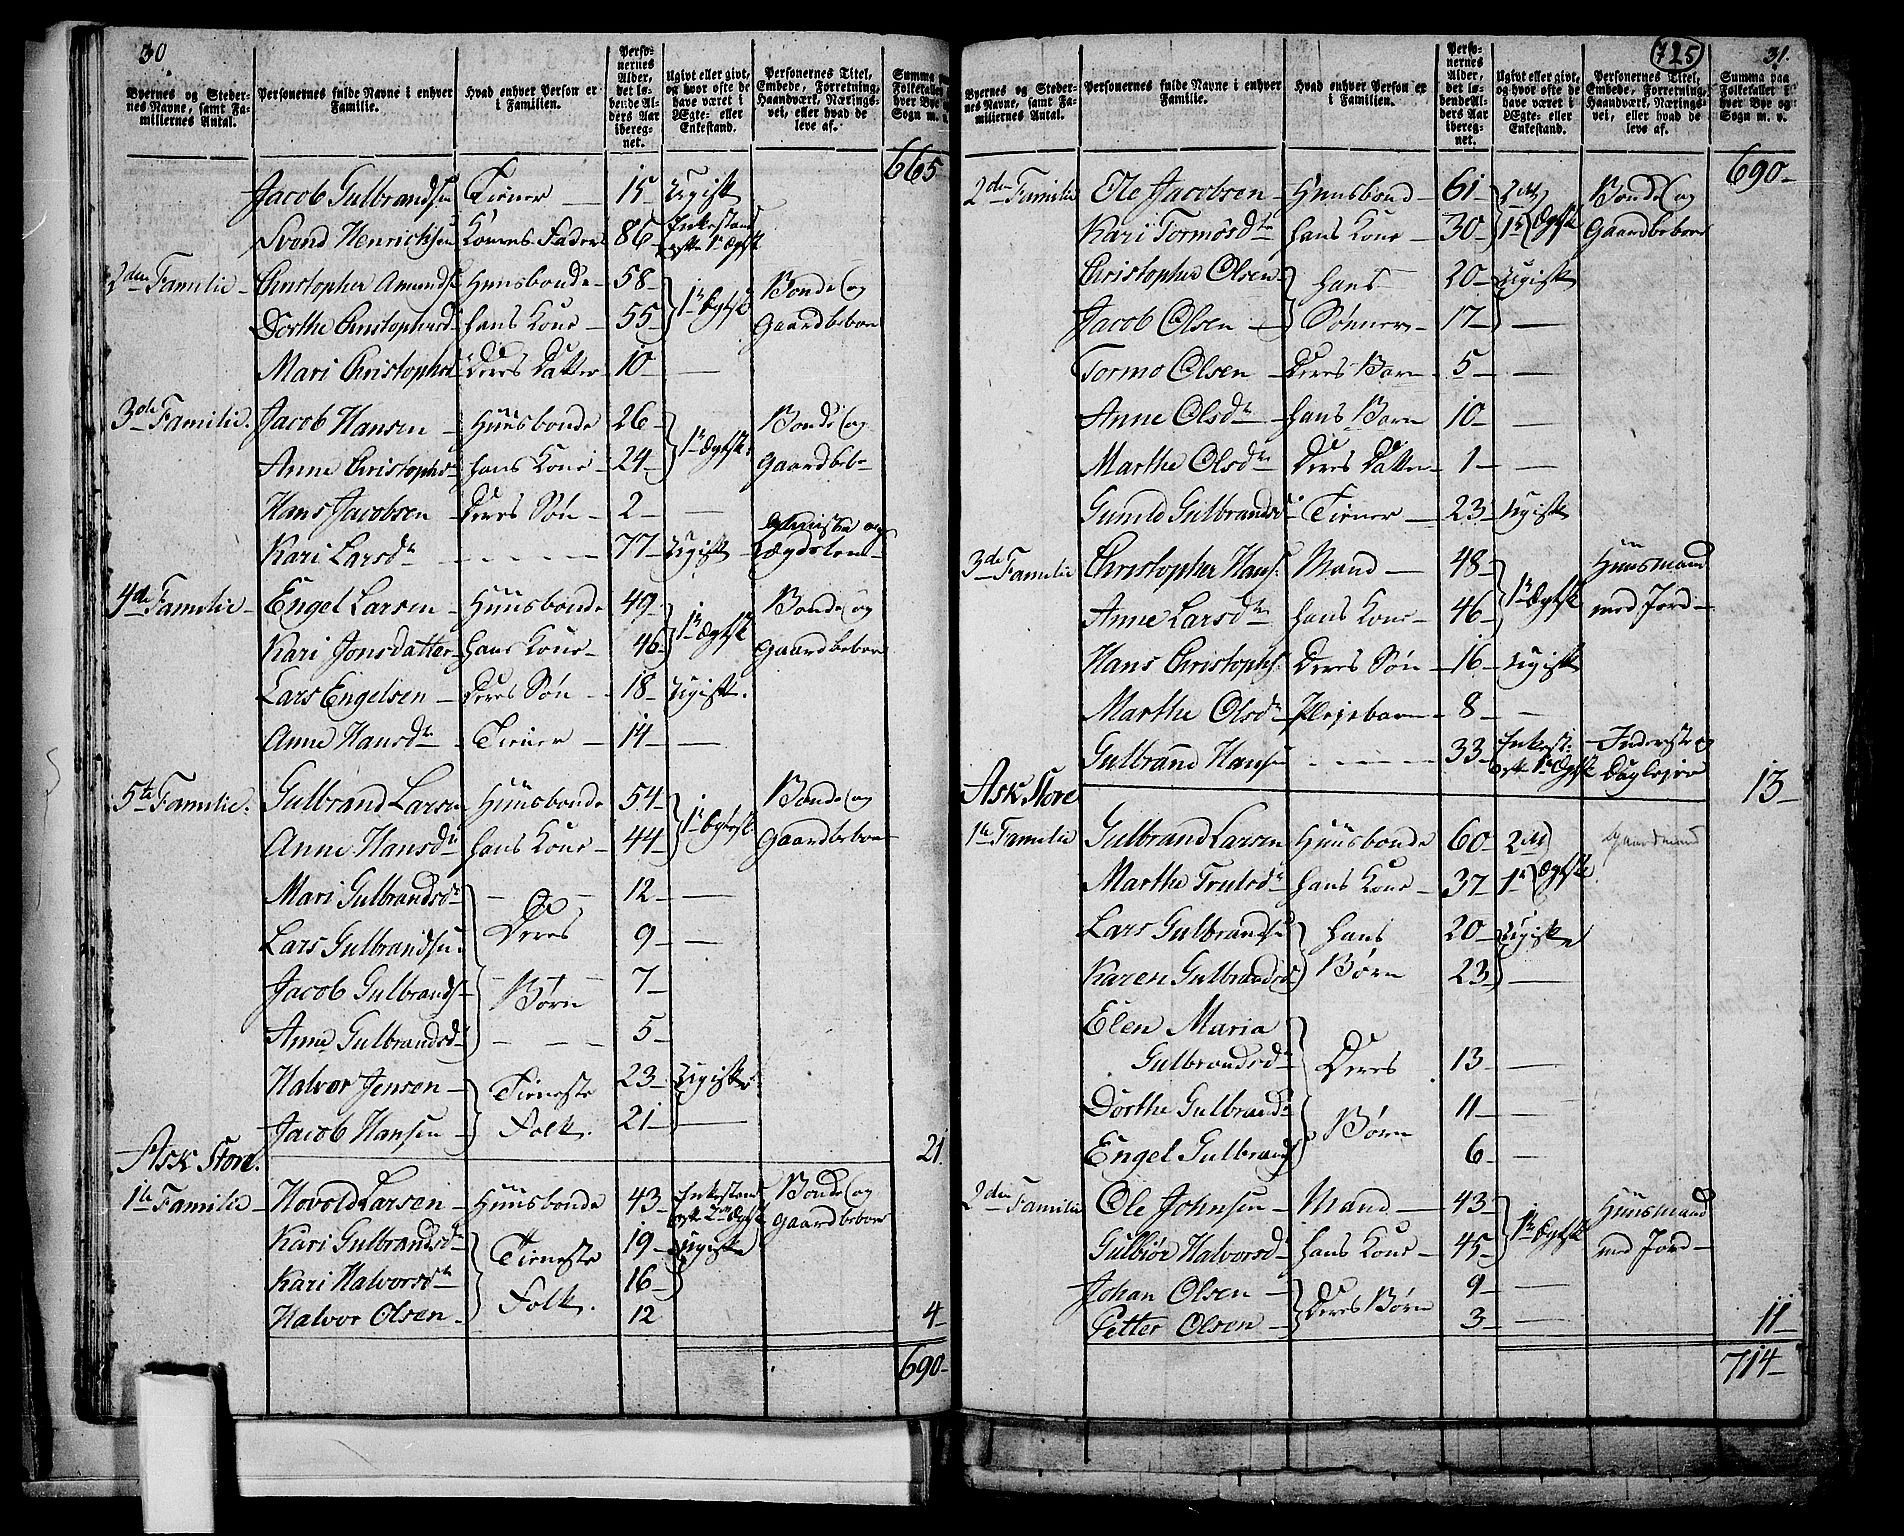 30.
Byernes og Steder-
nes Navne, samt Fa-
miliernes Antal.
Personernes fulde Navne i enhver
Familie.
Hvad enhver Person er
i Familien.
Perso-
nernes
Alder,
det lø-
bende Al-
ders Aar
ibereg-
net.
Ugivt eller givt,
og hvor ofte de
have været i
Ægte- eller
Enkestand.
Personernes Titel,
Embede, Forretning,
Haandværk, Nærings-
vei, eller hvad de
leve af.
Summa paa
Folketallet i
hver Bye og
Sogn m. v.
665
Jacob Gulbrandsen Tiener 15 Ugift
Svend Henrichsen Konens Fader 86 Enkestand efter 1te Ægtsk
2den Familie Christopher Amunds Huusbonde 58 1te Ægtsk Bonde og
Dorthe Christophersd hans Kone 55 Gaardbeboer
Mari Christophersd Deres Datter 10 —
3de Familie Jacob Hansen Huusbonde 26 1te Ægtsk Bonde og
Anne Christophersd hans Kone 24 Gaardbebo
Hans Jacobsen Deres Søn 2 —
Kari Larsdr 77 Ugift Lægdslem
4de Familie Engel Larsen Huusbonde 49 1te Ægtsk Bonde og
Kari Jonsdatter hans Kone 46 Gaardbeboer
Lars Engelsen Deres Søn 18 Ugift
Anne Hansdr Tiener 14 —
5te Familie Gulbrand Larsen Huusbonde 54 1te Ægtsk Bonde og
Anne Hansdr hans Kone 44 Gaardbeboer
Mari Gulbrandsdr 12 —
Lars Gulbrandsen Deres 9 —
Jacob Gulbrands Børn 7
Anne Gulbrandsd 5
Halvor Jensen Tieneste 23 Ugifte
Jacob Hansen Folk 21 —
Ask Store. 21
1te Familie Hovold Larsen Huusbonde 43 Enkestand efter 2det Ægtsk Bonde og Gaardbeboer
Kari Gulbrandsdr Tieneste 19 Ugifte
Kari Halvorsdr 16
Halvor Olsen Folk 12 4
690
725
31.
Byernes og Steder-
nes Navne, samt Fa-
miliernes Antal.
Personernes fulde Navne i enhver
Familie.
Hvad enhver Person er
i Familien.
Perso-
nernes
Alder,
det lø-
bende Al-
ders Aar
ibereg-
net.
Ugivt eller givt,
og hvor ofte de
have været i
Ægte- eller
Enkestand.
Personernes Titel,
Embede, Forretning,
Haandværk, Nærings-
vei, eller hvad de
leve af.
Summa paa
Folketallet i
hver Bye og
Sogn m. v.
690
2den Familie Ole Jacobsen Huusbond 61 2det Bonde og
Kari Tormosdr hans Kone 30 1te Ægtsk Gaardbeboer
Christopher Olsen hans 20 Ugift
Jacob Olsen Sønner 17 —
Tormo Olsen Deres Barn 5 —
Anne Olsdr hans Barn 10 —
Marthe Olsdr Deres Datter 1 —
Gunild Gulbrandsd Tiener 23 Ugift
3de Familie Christopher Hans. Mand 48 1te Ægtsk Huusmand
Anne Larsdr hans Kone 46 med Jord
Hans Christophs. Deres Søn 16 Ugift
Marthe Olsdr Plejebarn 8 —
Gulbrand Hansen 33 Enkest. efter 1te Ægtsk Inderst og Daglejer
Ask Store 13
1te Familie Gulbrand Larsen Huusbonde 60 2det Gaardmand
Marthe Trulsdr hans Kone 37 1te Ægtsk
Lars Gulbrandsen hans 20 Ugifte
Karen Gulbrandsd Børn 23 —
Elen Maria
Gulbrandsdr Deres 13 —
Dorthe Gulbrandsd 11 —
Engel Gulbrands Børn 6 —
2den Familie Ole Johnsen Mand 43 1te Ægtsk Huusmand
Gulbiør Halvorsd hans Kone 45 med Jord
Johan Olsen Deres Børn 9 —
Petter Olsen 3 — 11
714